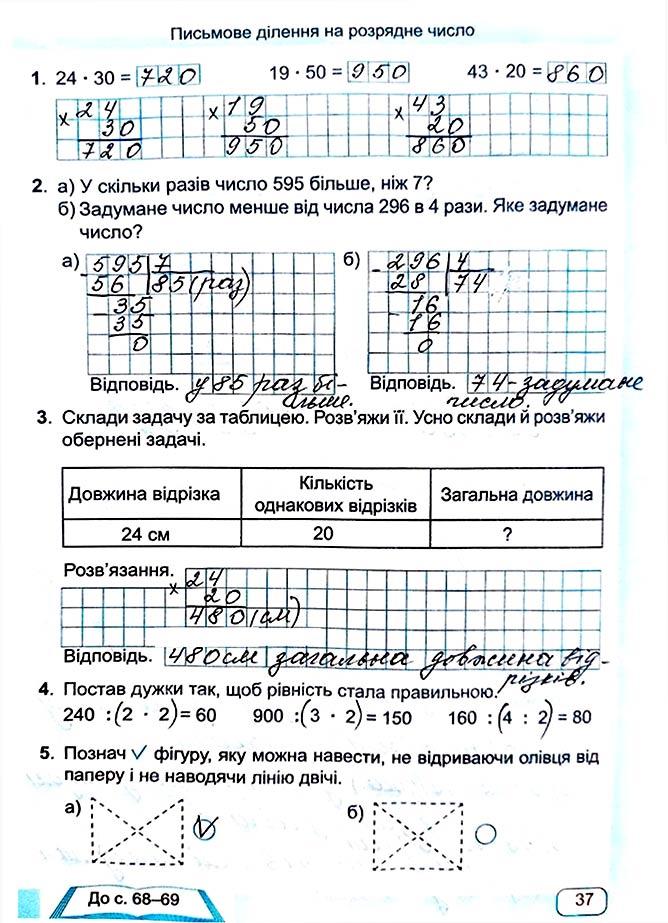 Письмове ділення на розрядне число
1. 24 · 30 = 720 19 · 50 = 950 43 · 20 = 860
× 24 × 19 × 43
30 50 20
720 950 860
2. а) У скільки разів число 595 більше, ніж 7?
б) Задумане число менше від числа 296 в 4 рази. Яке задумане
число?
а) - 595 | 7 б) - 296 | 4
56 | 85 (раз) 28 | 74
- 35 - 16
35 16
0 0
Відповідь. у 85 раз бі- Відповідь. 74 - задумане
льше. число.
3. Склади задачу за таблицею. Розв'яжи її. Усно склади й розв'яжи
обернені задачі.
Довжина відрізка Кількість однакових відрізків Загальна довжина
24 см 20 ?
Розв'язання. × 24
20
480 (см)
Відповідь. 480 см загальна довжина від-
різків.
4. Постав дужки так, щоб рівність стала правильною.
240 :(2 · 2)= 60 900 :(3 · 2)= 150 160 :(4 : 2)= 80
5. Познач ✓ фігуру, яку можна навести, не відриваючи олівця від
паперу і не наводячи лінію двічі.
а) ✓ б)
До с. 68–69 37